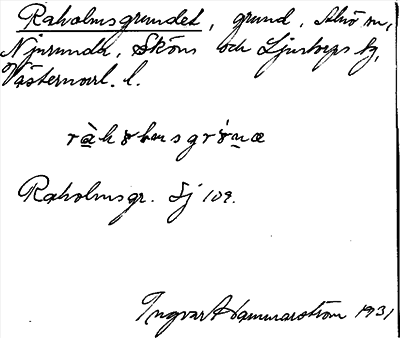 Raholmsgrundet, grund, Alnö sn,
Njurunda, Sköns och Ljustorps tg,
Västernorrl. l.
ràhòlmsgrúnæ
Raholmsgr. Sj 109.
Ingvar Hammarström 1931